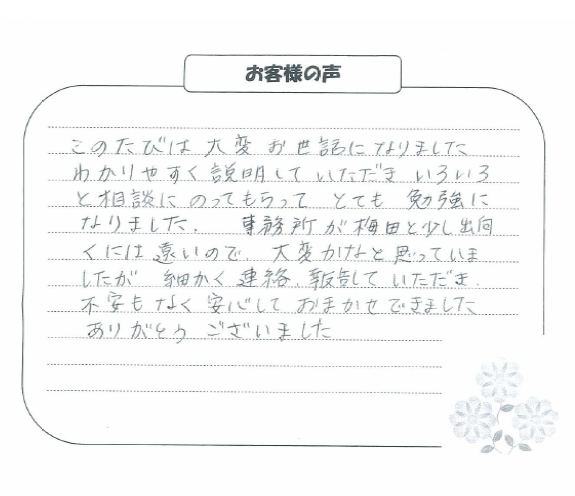 お客様の声
このたびは 大変 お世話になりました
わかりやすく 説明して いただき いろいろ
と相談に のってもらって とても 勉強に
なりました. 事務所が梅田と少し出向
くには遠いので、大変かなと思っていま
したが 細かく連絡、報告して いただき、
不安もなく 安心して おまかせできました
ありがとう ございました